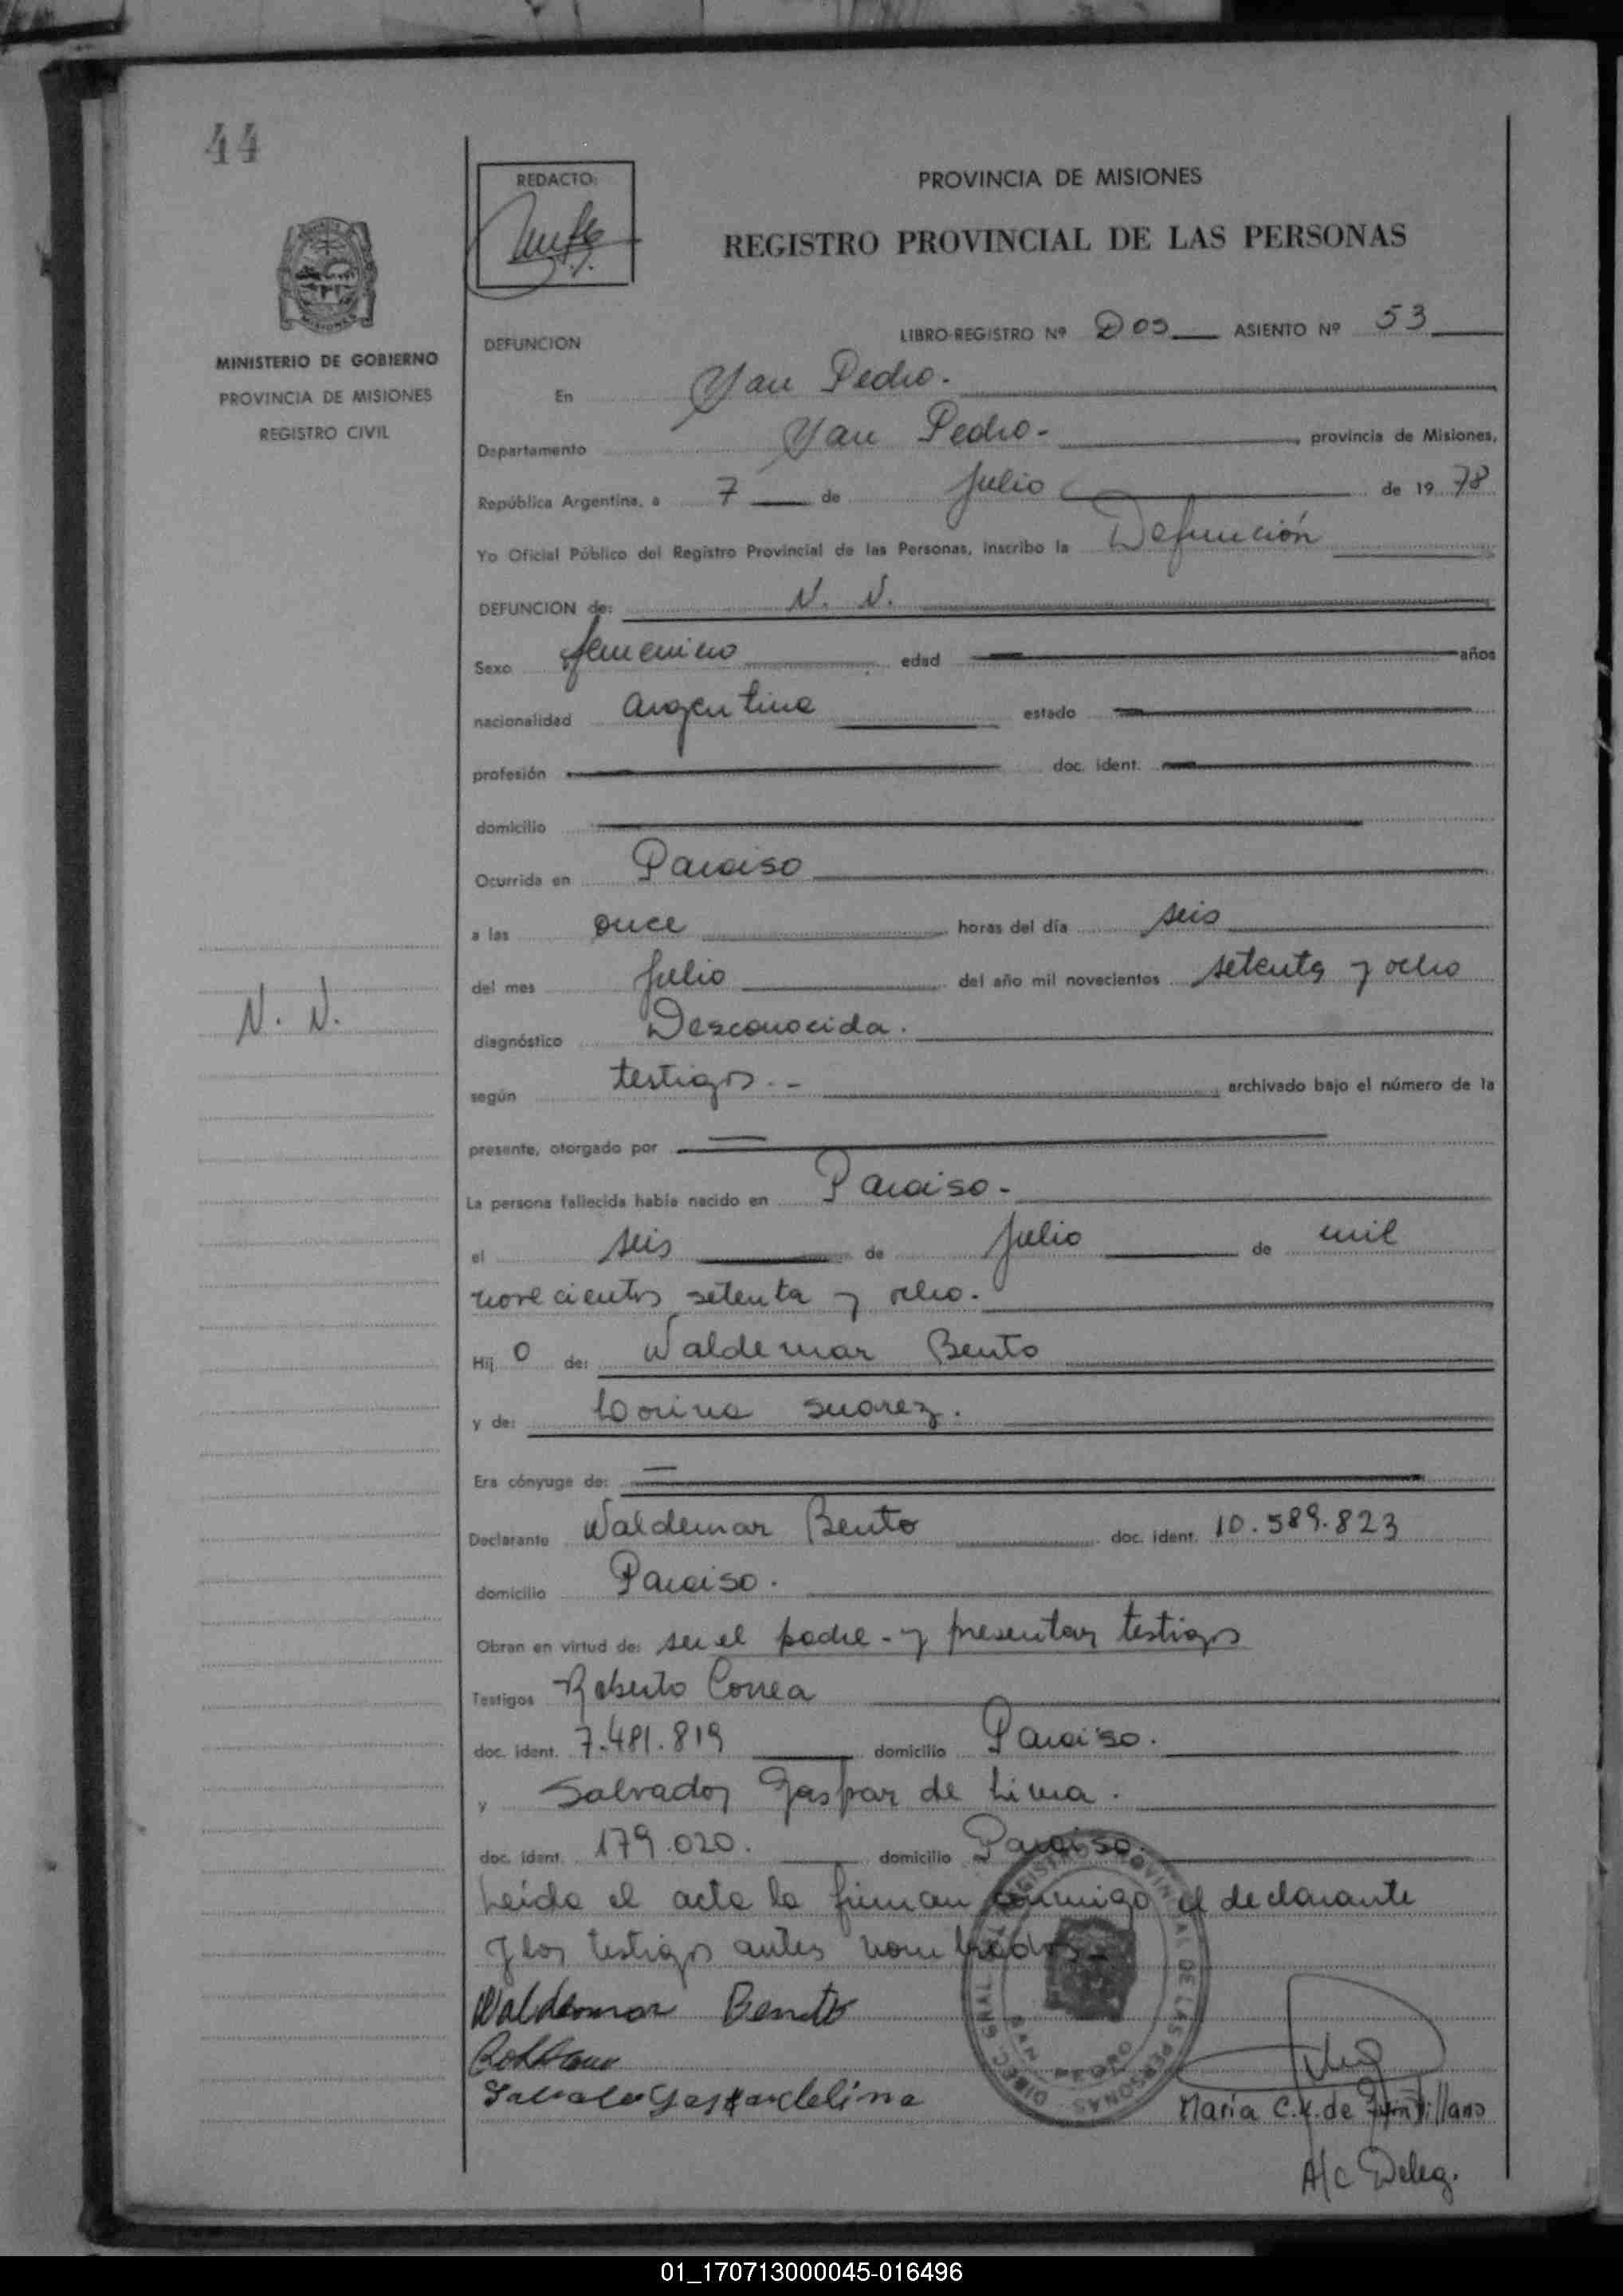 44
REDACTO:
PROVINCIA DE MISIONES
REGISTRO PROVINCIAL DE LAS PERSONAS
MINISTERIO DE GOBIERNO
PROVINCIA DE MISIONES
REGISTRO CIVIL
DEFUNCION
LIBRO-REGISTRO Nº Dos ASIENTO Nº 53
En San Pedro.
Departamento San Pedro- , provincia de Misiones,
República Argentina, a 7 de Julio de 19 78
Yo Oficial Público del Registro Provincial de las Personas, inscribo la Defunción
DEFUNCION de: N. N.
Sexo femenino edad años
nacionalidad argentina estado
profesión doc. ident.
domicilio
Ocurrida en Paraiso
a las once horas del día seis
del mes Julio del año mil novecientos setenta y ocho
N. N.
diagnóstico Desconocida.
según testigos.- archivado bajo el número de la
presente, otorgado por
La persona fallecida había nacido en Paraiso-
el seis de Julio de mil
novecientos setenta y ocho.
Hij o de: Waldemar Bento
y de: Corina Suarez.
Era cónyuge de:
Declarante Waldemar Bento doc. ident. 10.589.823
domicilio Paraiso.
Obran en virtud de: ser el padre- y presentar testigos
Testigos Roberto Correa
doc. ident. 7.481.819 domicilio Paraiso.
y Salvador Gaspar de Lima.
doc. ident. 179.020. domicilio Paraiso.
Leida el acta la firman conmigo el declarante
y los testigos antes nombrados-
Waldemar Bento
DIREC. GRAL. REGISTRO PROVINCIAL DE LAS PERSONAS
SAN PEDRO
María C. de
A/c Deleg.
01_170713000045-016496